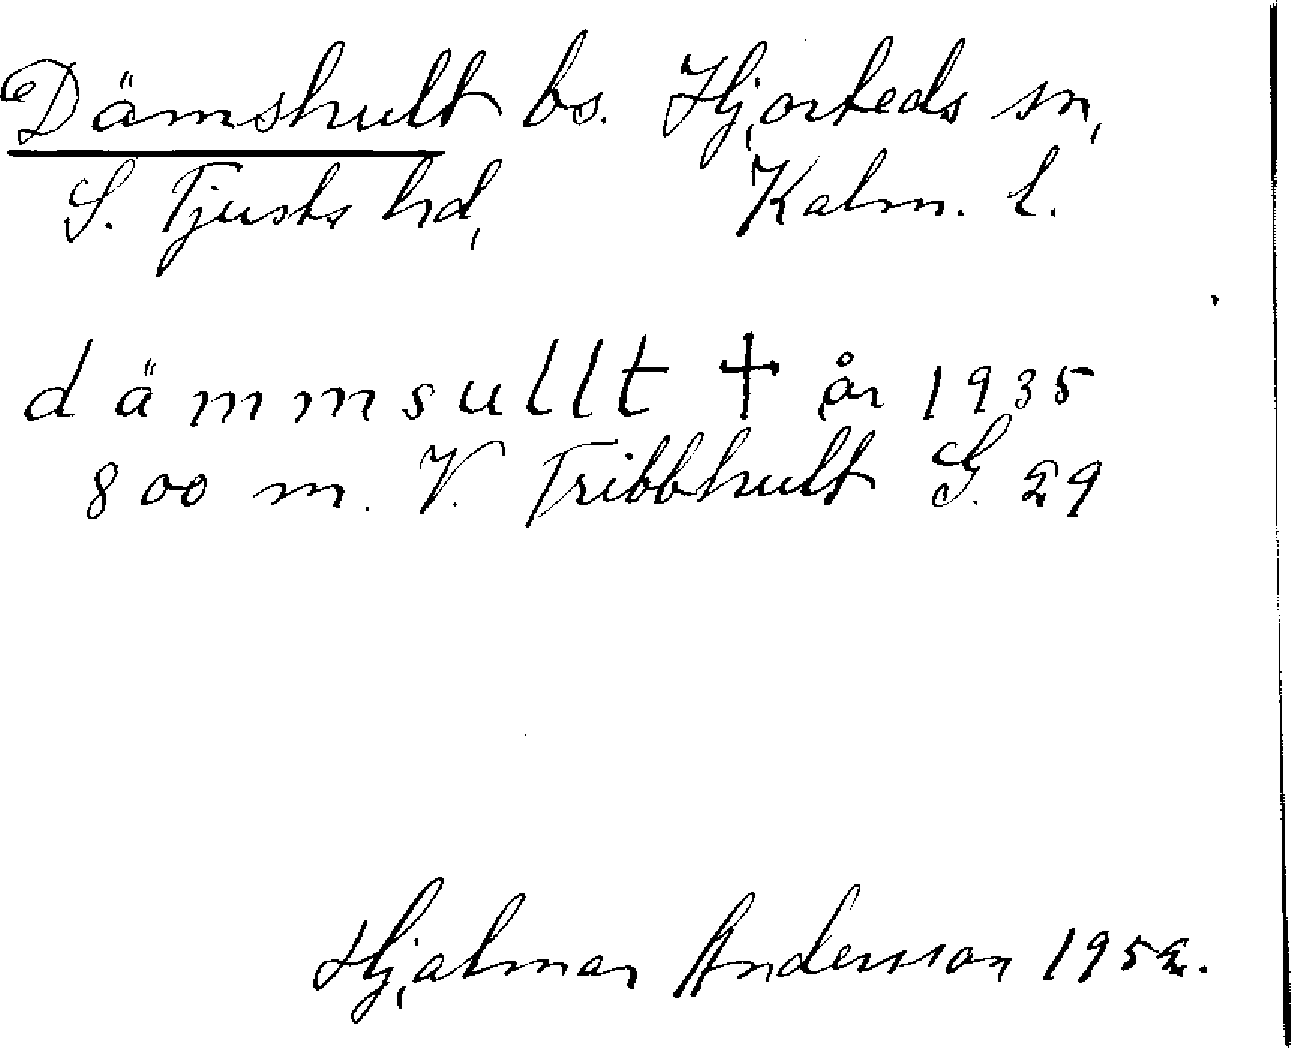 Dämshult bs. Hjorteds sn,
S. Tjusts hd, Kalm. l.
dämmsullt † år 1935
800 m. V. Tribbhult G. 29
Hjalmar Andersson 1952.